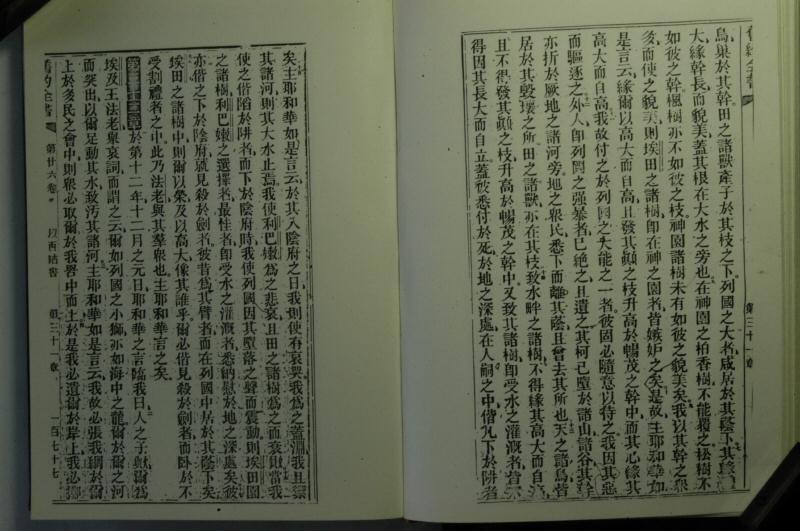 舊約全書
第三十一章
鳥巢於其幹田之諸獸產子於其枝之下列國之大者咸居於其蔭下其
大緣幹長而貌美蓋其根在大水之旁也在神園之柏香樹不能覆之松樹不
如彼之幹楓樹亦不如彼之枝神園諸樹未有如彼之貌美矣我以其幹之眾
多而使之貌美則埃田之諸樹即在神之園者皆嫉妒之矣是故主耶和華如
是言云緣爾以高大而自高且發其顛之枝升高於暢茂之幹中而其心緣其
高大而自高我故付之於列國之大能之一者彼固必隨意以待之我因其惡
而驅逐之外人即列國之强暴者已絶之且遺之其柯已墮於諸山諸谷其幹
亦折於厥地之諸河旁地之眾民悉下而離其蔭且會去其所也天之諸鳥皆
居於其毀壞之所田之諸獸亦在其枝致水畔之諸樹不得緣其高大而自
且不得發其顛之枝升高於暢茂之幹中又致其諸樹即受水之灌溉者皆
得因其長大而自立蓋彼悉付於死於地之深處在人嗣之中偕凡下於阱者
矣主耶和華如是言云於其入陰府之日我則使有哀哭我爲之蓋淵我且禁
其諸河則其大水止焉我使利巴嫩爲之悲哀且田之諸樹爲之而衰敗當我
使之偕陷於阱者而下於陰府時我使列國因其墮落之聲而震動則埃田園
之諸樹利巴嫩之選擇者最性者即受水之灌溉者悉納慰於地之深處矣彼
亦偕之下於陰府就見殺於劍者彼昔爲其臂者而在列國中居於其蔭下矣
埃田之諸樹中則爾以榮及以高大像其誰乎爾必偕見殺於劍者而卧於不
受割禮者之中此乃法老與其羣眾也主耶和華言之矣
於第十二年十二月之元日耶和華之言臨我曰人之子歟爾爲
埃及王法老舉哀詞而謂之云爾如列國之小獅亦如海中之龍爾於爾之河
而突出以爾足動其水致污其諸河主耶和華如是言云我故必張我網於爾
上於多民之會中則眾必取爾於我罟中而上於是我必遺爾於岸上我必擲
舊約全書 第廿六卷
以西結書
第三十一章
一百七十七